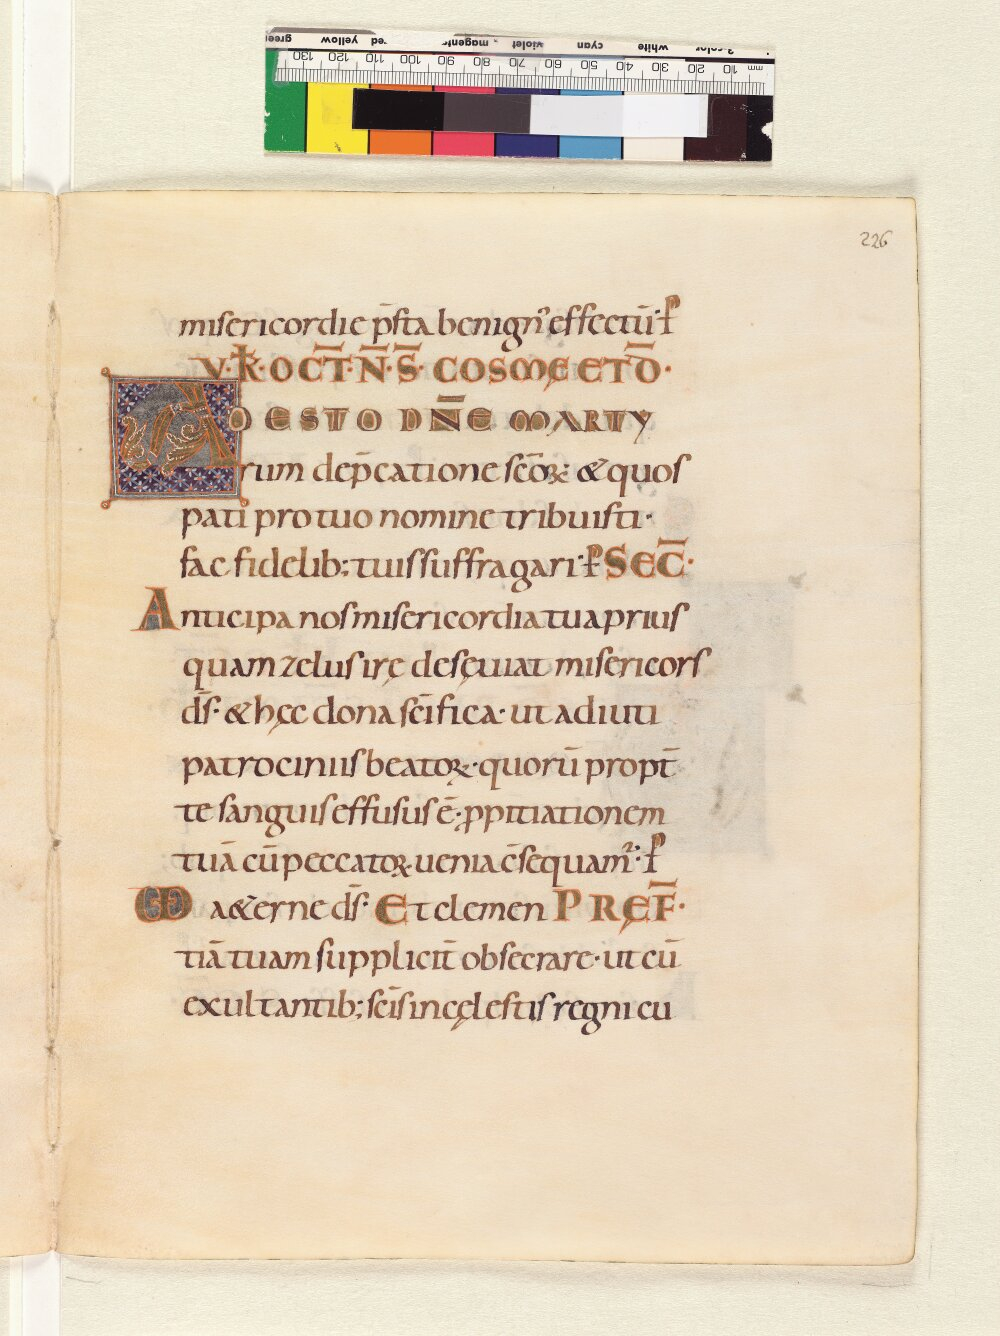 green yellow red magenta violet cyan white 3-color
130 120 110 100 90 80 70 60 50 40 30 20 10 mm
226
misericordie p̄sta benignˀ effectū· ꝑ
V· K̄· OCT̄· N̄· S̄· COSMĘ ET D̄·
ADESTO DN̄E MARTY
rum dep̄catione sc̄oꝝ· & quos
pati pro tuo nomine tribuisti·
fac fidelib; tuis suffragari· ꝑ SEC̄·
Anticipa nos misericordia tua prius
quam zelus irę desęuiat misericors
d̄s· & hęc dona sc̄ifica· ut adiuti
patrociniis beatoꝝ· quorū propt̄
te sanguis effusus ē· ꝓpitiationem
tuā cū peccatoꝝ uenia c̄sequamᷣ· ꝑ
M a &erne d̄s· Et clemen PREF̄·
tiā tuam suppliciт̄ obsecrare· ut cū
exultantib; sc̄is in cęlestis regni cu